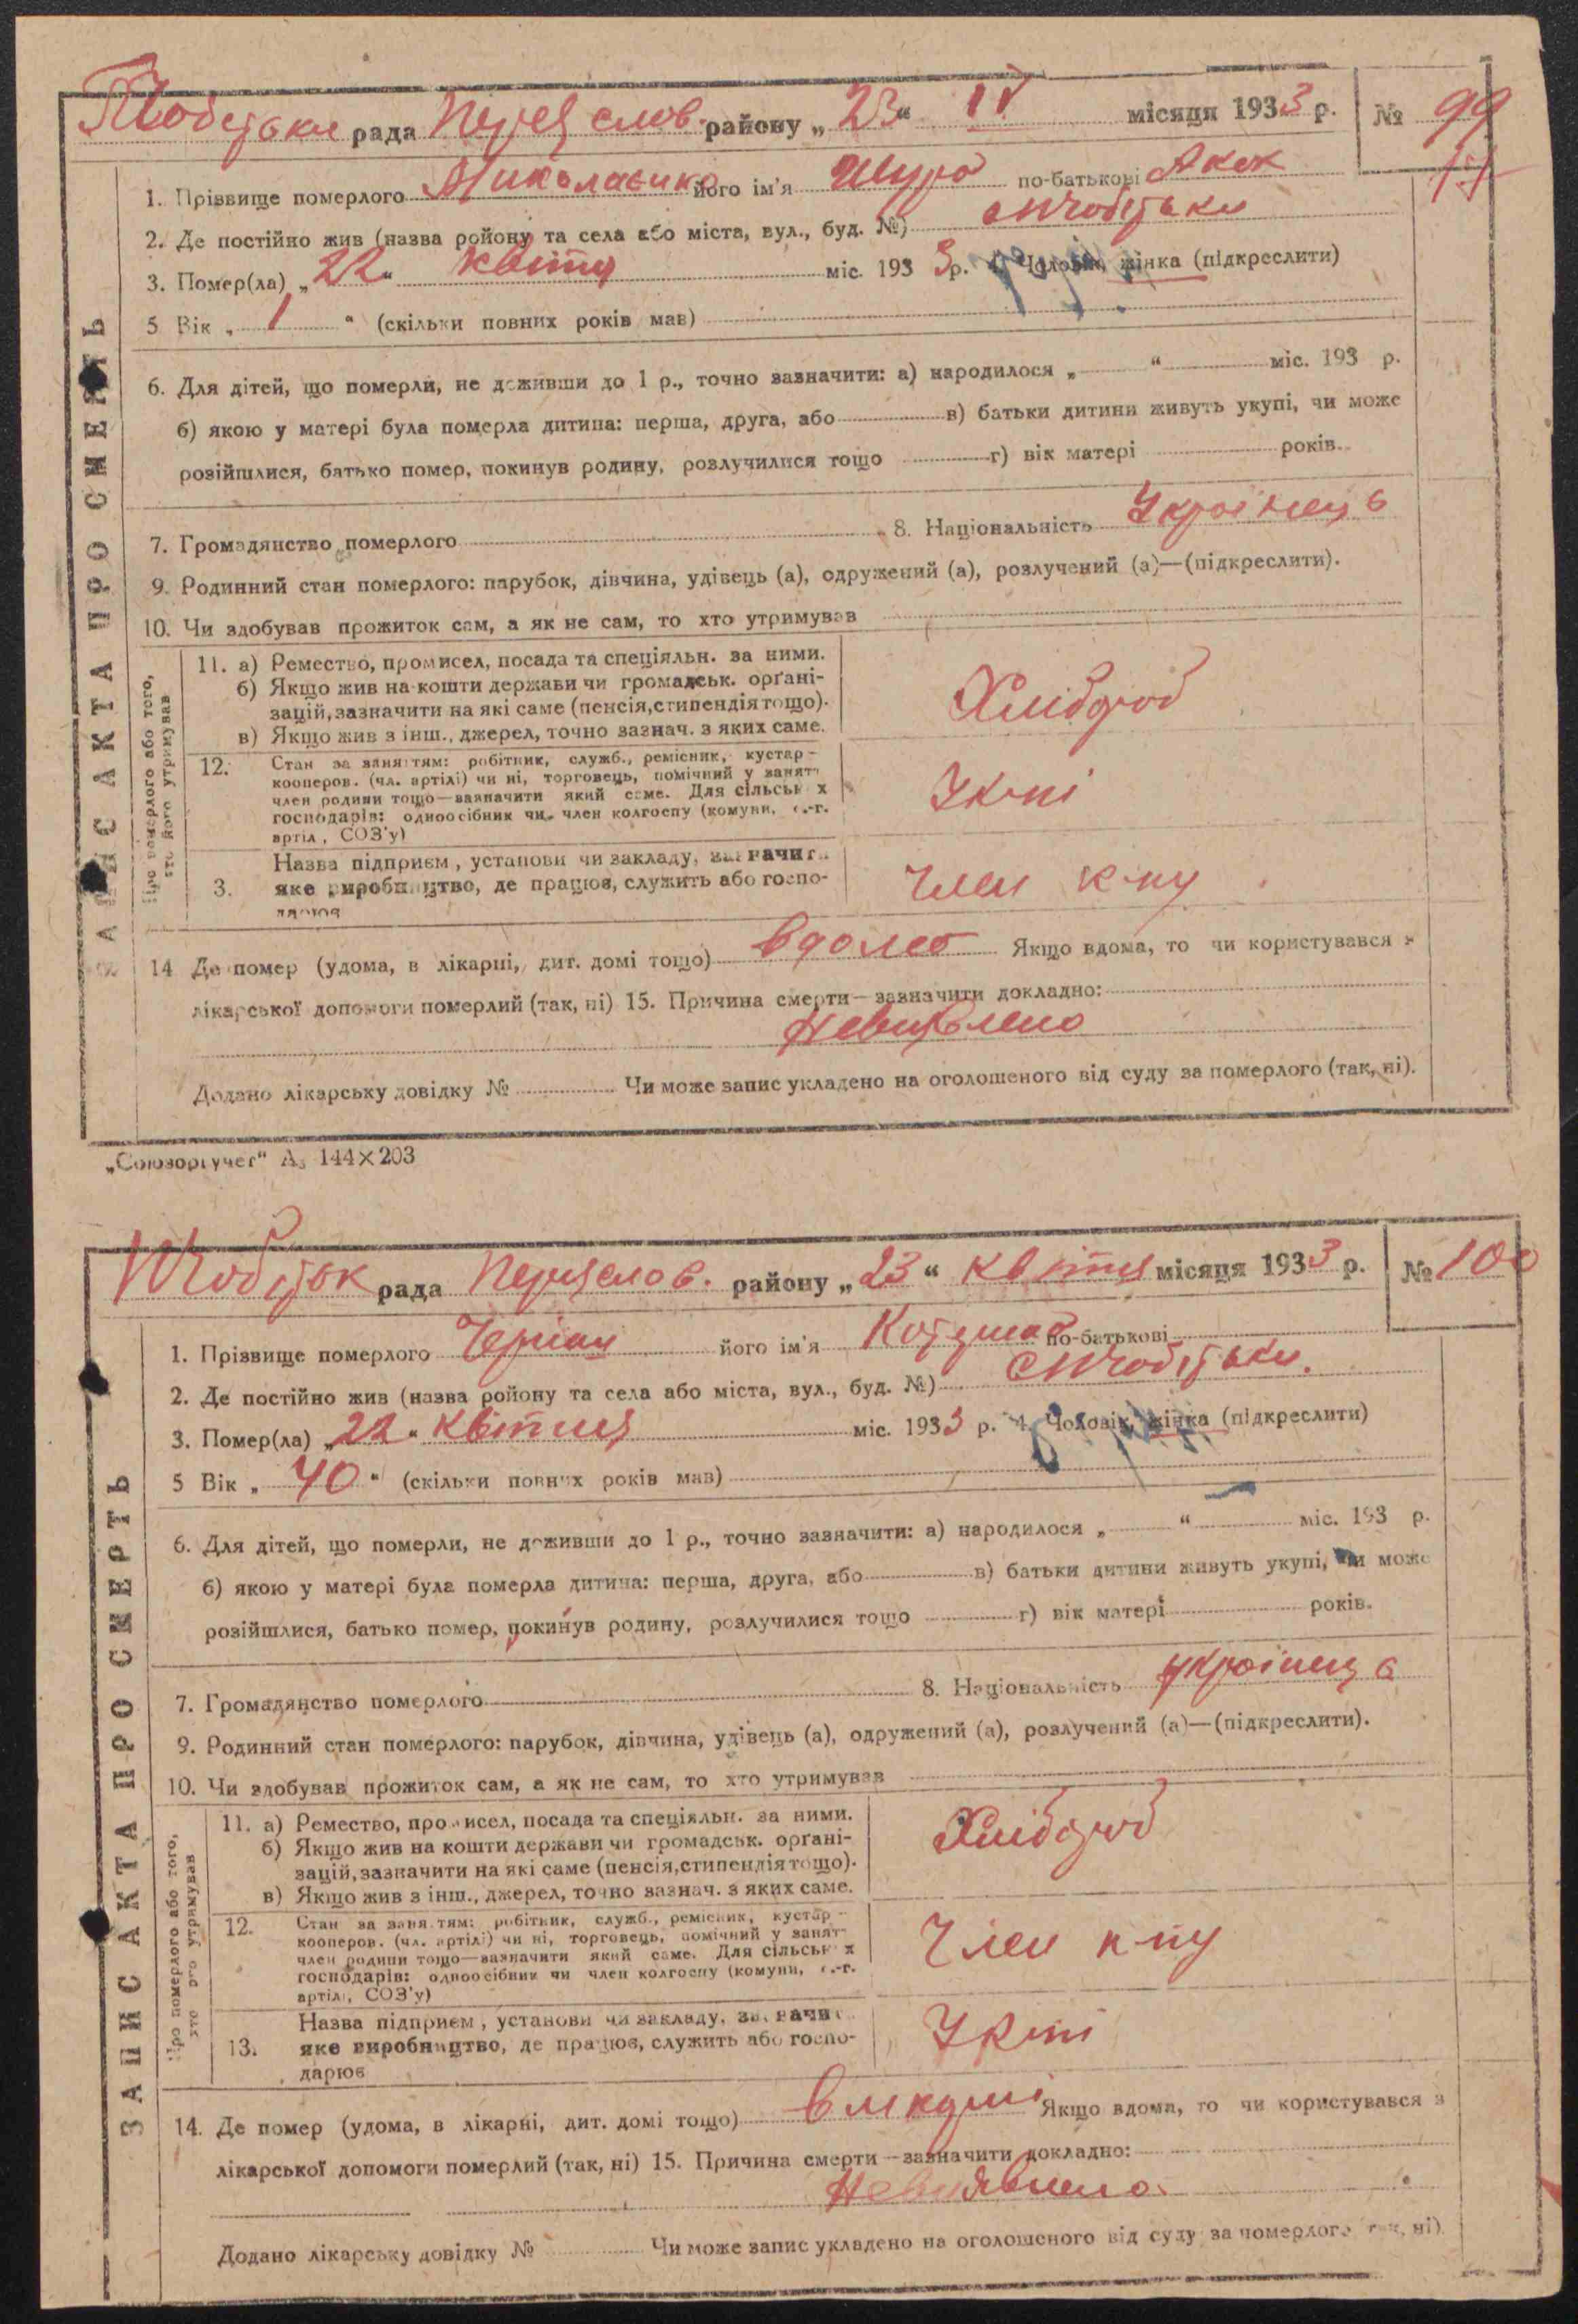 рада районy „ 23 “ IV місяця 1933 р. № 99
1. Прізвище померлого Миколаєнко його ім'я Шура по-батькові
2. Де постійно жив (назва ройону та села або міста, вул., буд. №)
3. Помер(ла) „ 22 “ квітня міс. 193 3 р. 4. Чоловік, жінка (підкреслити)
5 Вік „ 1 “ (скільки повних років мав)
6. Для дітей, що померли, не доживши до 1 р., точно зазначити: а) народилося „ “ міс. 193 р.
б) якою у матері була померла дитина: перша, друга, або в) батьки дитини живуть укупі, чи може
розійшлися, батько помер, покинув родину, розлучилися тощо г) вік матері років.
7. Громадянство померлого 8. Національність Українець
9. Родинний стан померлого: парубок, дівчина, удівець (а), одружений (а), розлучений (а)—(підкреслити).
10. Чи здобував прожиток сам, а як не сам, то хто утримував
ЗАПИС АКТА ПРО СМЕРТЬ
Про померлого або того,
хто його утримував
11. а) Ремество, промисел, посада та спеціяльн. за ними.
б) Якщо жив на кошти держави чи громадськ. орґані-
зацій, зазначити на які саме (пенсія, стипендія тощо).
в) Якщо жив з інш., джерел, точно зазнач. з яких саме.
Хлібороб
12. Стан за заняттям: робітник, служб., ремісник, кустар -
кооперов. (чл. артілі) чи ні, торговець, помічний у занятт
член родини тощо—зазначити який саме. Для сільськ х
господарів: одноосібник чи член колгоспу (комуни, с.-г.
артіл , СОЗ'у)
3. Назва підприєм , установи чи закладу, зазначит
яке виробництво, де працює, служить або госпо-
дарює
член к-пу
14 Де помер (удома, в лікарні, дит. домі тощо) вдома Якщо вдома, то чи користувався з
лікарської допомоги померлий (так, ні) 15. Причина смерти—зазначити докладно:
Невиявлено
Додано лікарську довідку № Чи може запис укладено на оголошеного від суду за померлого (так, ні).
„Союзоргучет“ А₅ 144×203
рада районy „ 23 “ квітня місяця 1933 р. № 100
1. Прізвище померлого його ім'я по-батькові
2. Де постійно жив (назва ройону та села або міста, вул., буд. №)
3. Помер(ла) „ 22 “ квітня міс. 1933 р. 4. Чоловік, жінка (підкреслити)
5 Вік „ 40 “ (скільки повних років мав)
6. Для дітей, що померли, не доживши до 1 р., точно зазначити: а) народилося „ “ міс. 193 р.
б) якою у матері була померла дитина: перша, друга, або в) батьки дитини живуть укупі, чи може
розійшлися, батько помер, покинув родину, розлучилися тощо г) вік матері років.
7. Громадянство померлого 8. Національність українець
9. Родинний стан померлого: парубок, дівчина, удівець (а), одружений (а), розлучений (а)—(підкреслити).
10. Чи здобував прожиток сам, а як не сам, то хто утримував
ЗАПИС АКТА ПРО СМЕРТЬ
Про померлого або того,
хто його утримував
11. а) Ремество, промисел, посада та спеціяльн. за ними.
б) Якщо жив на кошти держави чи громадськ. орґані-
зацій, зазначити на які саме (пенсія, стипендія тощо).
в) Якщо жив з інш., джерел, точно зазнач. з яких саме.
Хлібороб
12. Стан за заняттям: робітник, служб., ремісник, кустар -
кооперов. (чл. артілі) чи ні, торговець, помічний у занят-
член родини тощо—зазначити який саме. Для сільськ х
господарів: одноосібник чи член колгоспу (комуни, с.-г.
артіл , СОЗ'у)
Член к-пу
13. Назва підприєм , установи чи закладу, зазначит
яке виробництво, де працює, служить або госпо-
дарює
14. Де помер (удома, в лікарні, дит. домі тощо) Якщо вдома, то чи користувався з
лікарської допомоги померлий (так, ні) 15. Причина смерти—зазначити докладно:
Невиявлено
Додано лікарську довідку № Чи може запис укладено на оголошеного від суду за померлого (так, ні)